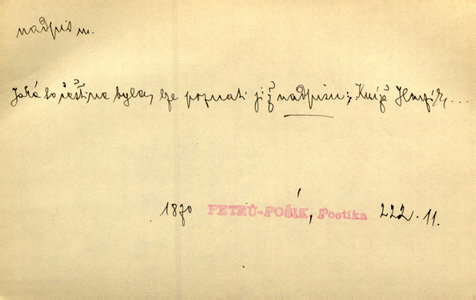 nadpis m.
Jaká to čeština byla, lze poznati již z nadpisu: Kniž
1870 PETRŮ-POŠÍK, Poetika 222.11.